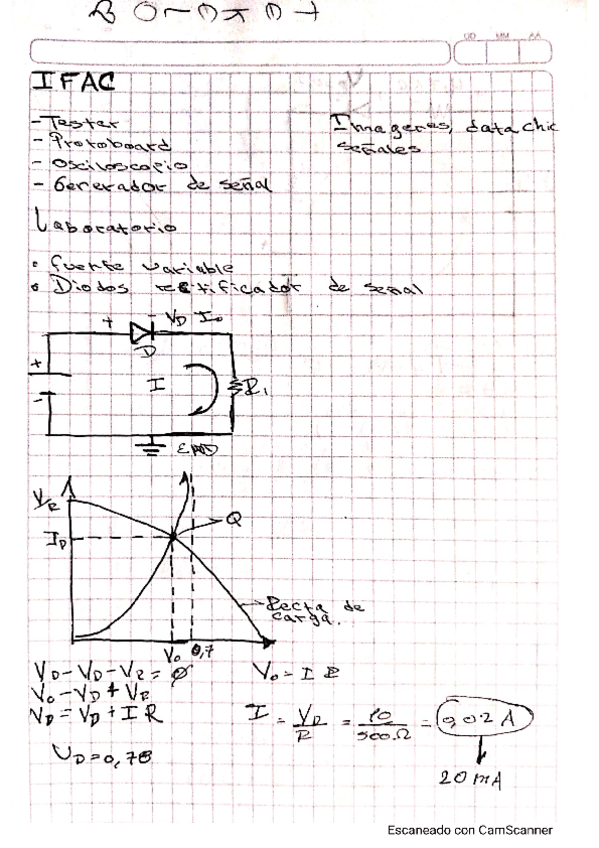 DD MM AA
IFAC
- Tester
- Protoboard
- Osciloscopio
- Generador de señal
Imagenes, data chic
señales
Laboratorio
• fuente variable
• Diodos rectificador de señal
+ - VD Io
D
+
-
I
R1
GND
VR
ID
Q
Recta de
carga.
Vo 0,7
VD-VD-VR=0
Vo-VD+VR
VD=VD+IR
UD=0,78
Vo-IR
I = VD/R = 10/500Ω = 0,02 A
20 mA
Escaneado con CamScanner